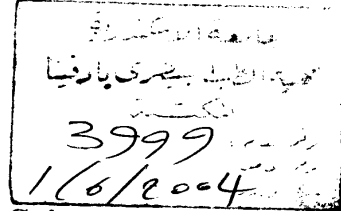 جامعة الاسكندرية
كلية الطب البيطرى بادفينا
المكتبة
3999
1/6/2004